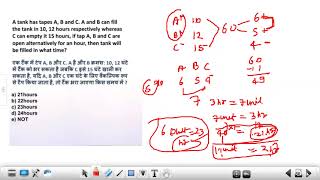 A tank has tapes A, B and C. A and B can fill
the tank in 10, 12 hours respectively whereas
C can empty it 15 hours, if tap A, B and C are
open alternatively for an hour, then tank will
be filled in what time?
एक टैंक में टेप A, B और C, A है और B क्रमश: 10, 12 घंटे
में टैंक को भर सकता है जबकि C इसे 15 घंटे खाली कर
सकता है, यदि A, B और C एक घंटे के लिए वैकल्पिक रूप
से टेप किया जाता है, तो टैंक भर जाएगा किस समय में ?
a) 21hours
b) 22hours
c) 23hours
d) 24hours
e) NOT
A 10
B 12
C 15
60
6
5
4
A B C
6 5 4
7
60
49
3 hr = 7 unit